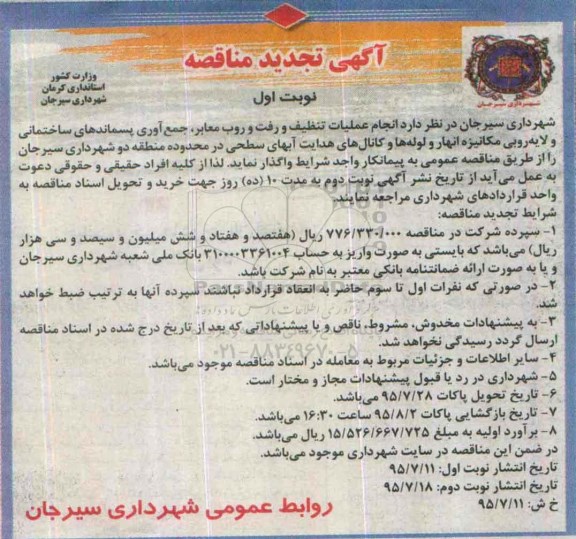 آگهی تجدید مناقصه
شهرداری سیرجان
وزارت کشور
استانداری کرمان
شهرداری سیرجان
نوبت اول
شهرداری سیرجان در نظر دارد انجام عملیات تنظیف و رفت و روب معابر، جمع آوری پسماندهای ساختمانی
و لایه‌روبی مکانیزه انهار و لوله‌ها و کانال‌های هدایت آبهای سطحی در محدوده منطقه دو شهرداری سیرجان
را از طریق مناقصه عمومی به پیمانکار واجد شرایط واگذار نماید. لذا از کلیه افراد حقیقی و حقوقی دعوت
به عمل می‌آید از تاریخ نشر آگهی نوبت دوم به مدت ۱۰ (ده) روز جهت خرید و تحویل اسناد مناقصه به
واحد قراردادهای شهرداری مراجعه نمایند.
شرایط تجدید مناقصه:
۱- سپرده شرکت در مناقصه ۷۷۶/۳۳۰/۰۰۰ ریال (هفتصد و هفتاد و شش میلیون و سیصد و سی هزار
ریال) می‌باشد که بایستی به صورت واریز به حساب ۳۱۰۰۰۰۳۳۶۱۰۰۴ بانک ملی شعبه شهرداری سیرجان
و یا به صورت ارائه ضمانتنامه بانکی معتبر به نام شرکت باشد.
۲- در صورتی که نفرات اول تا سوم حاضر به انعقاد قرارداد نباشند سپرده آنها به ترتیب ضبط خواهد
شد.
۳- به پیشنهادات مخدوش، مشروط، ناقص و یا پیشنهاداتی که بعد از تاریخ درج شده در اسناد مناقصه
ارسال گردد رسیدگی نخواهد شد.
۴- سایر اطلاعات و جزئیات مربوط به معامله در اسناد مناقصه موجود می‌باشد.
۵- شهرداری در رد یا قبول پیشنهادات مجاز و مختار است.
۶- تاریخ تحویل پاکات ۹۵/۷/۲۸ می‌باشد.
۷- تاریخ بازگشایی پاکات ۹۵/۸/۲ ساعت ۱۶:۳۰ می‌باشد.
۸- برآورد اولیه به مبلغ ۱۵/۵۲۶/۶۶۷/۷۲۵ ریال می‌باشد.
در ضمن این مناقصه در سایت شهرداری موجود می‌باشد.
تاریخ انتشار نوبت اول: ۹۵/۷/۱۱
تاریخ انتشار نوبت دوم: ۹۵/۷/۱۸
خ ش: ۹۵/۷/۱۱
روابط عمومی شهرداری سیرجان
۰۲۱-۸۸۳۴۹۶۷۰-۵